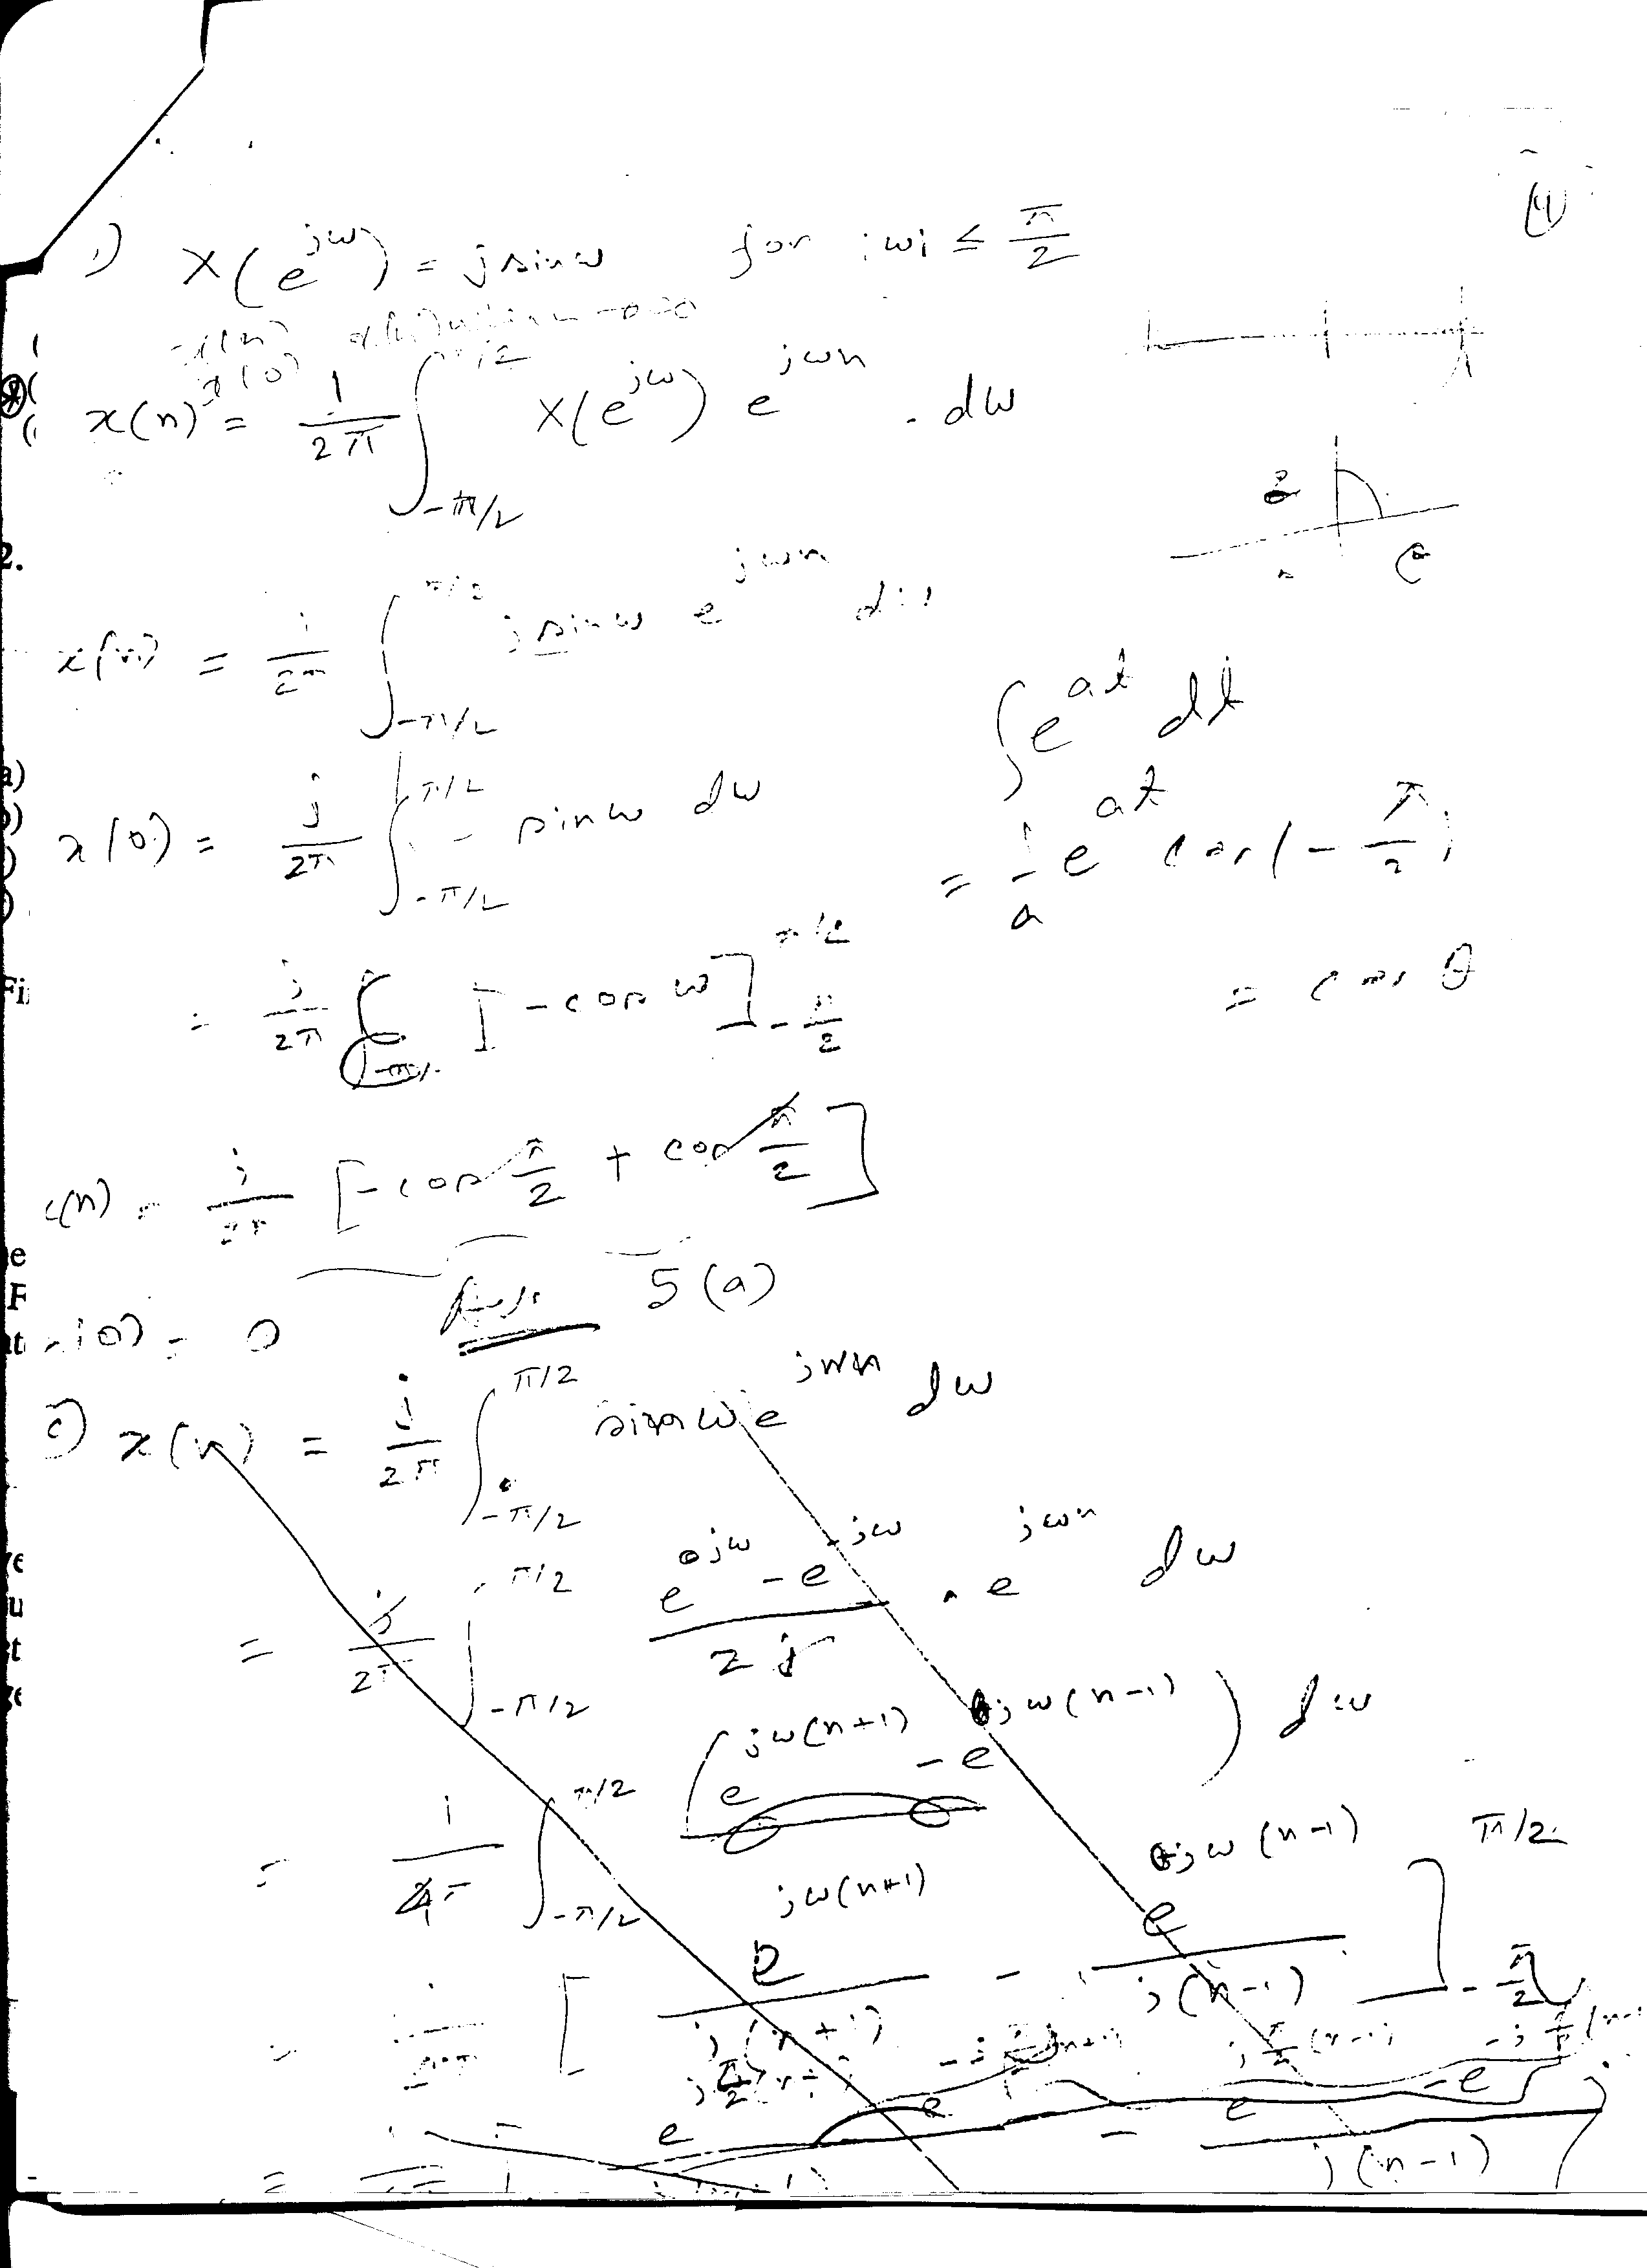 1) X(e^{jω}) = j sin ω for |ω| ≤ π/2
x(n) = 1/2π ∫_{-π/2}^{π/2} X(e^{jω}) e^{jωn} . dω
2.
x(n) = 1/2π ∫_{-π/2}^{π/2} j sin ω e^{jωn} dω
∫ e^{at} dt
x(0) = j/2π ∫_{-π/2}^{π/2} sin ω dω
= 1/a e^{at} cos(-π/2)
= j/2π [-cos ω]_{-π/2}^{π/2}
= cos θ
x(n) = j/2π [-cos π/2 + cos π/2]
x(0) = 0 Ans 5(a)
c) x(n) = j/2π ∫_{-π/2}^{π/2} sin ω e^{jωn} dω
= j/2π ∫_{-π/2}^{π/2} (e^{jω} - e^{-jω})/2j . e^{jωn} dω
= 1/4π ∫_{-π/2}^{π/2} (e^{jω(n+1)} - e^{jω(n-1)}) dω
= [e^{jω(n+1)}/j(n+1) - e^{jω(n-1)}/j(n-1)]_{-π/2}^{π/2}
j(n-1)